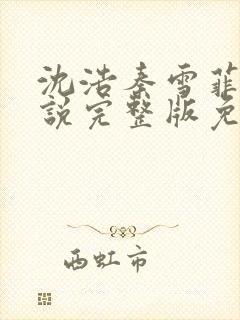 沈浩秦雪菲
說完整版免
西虹市